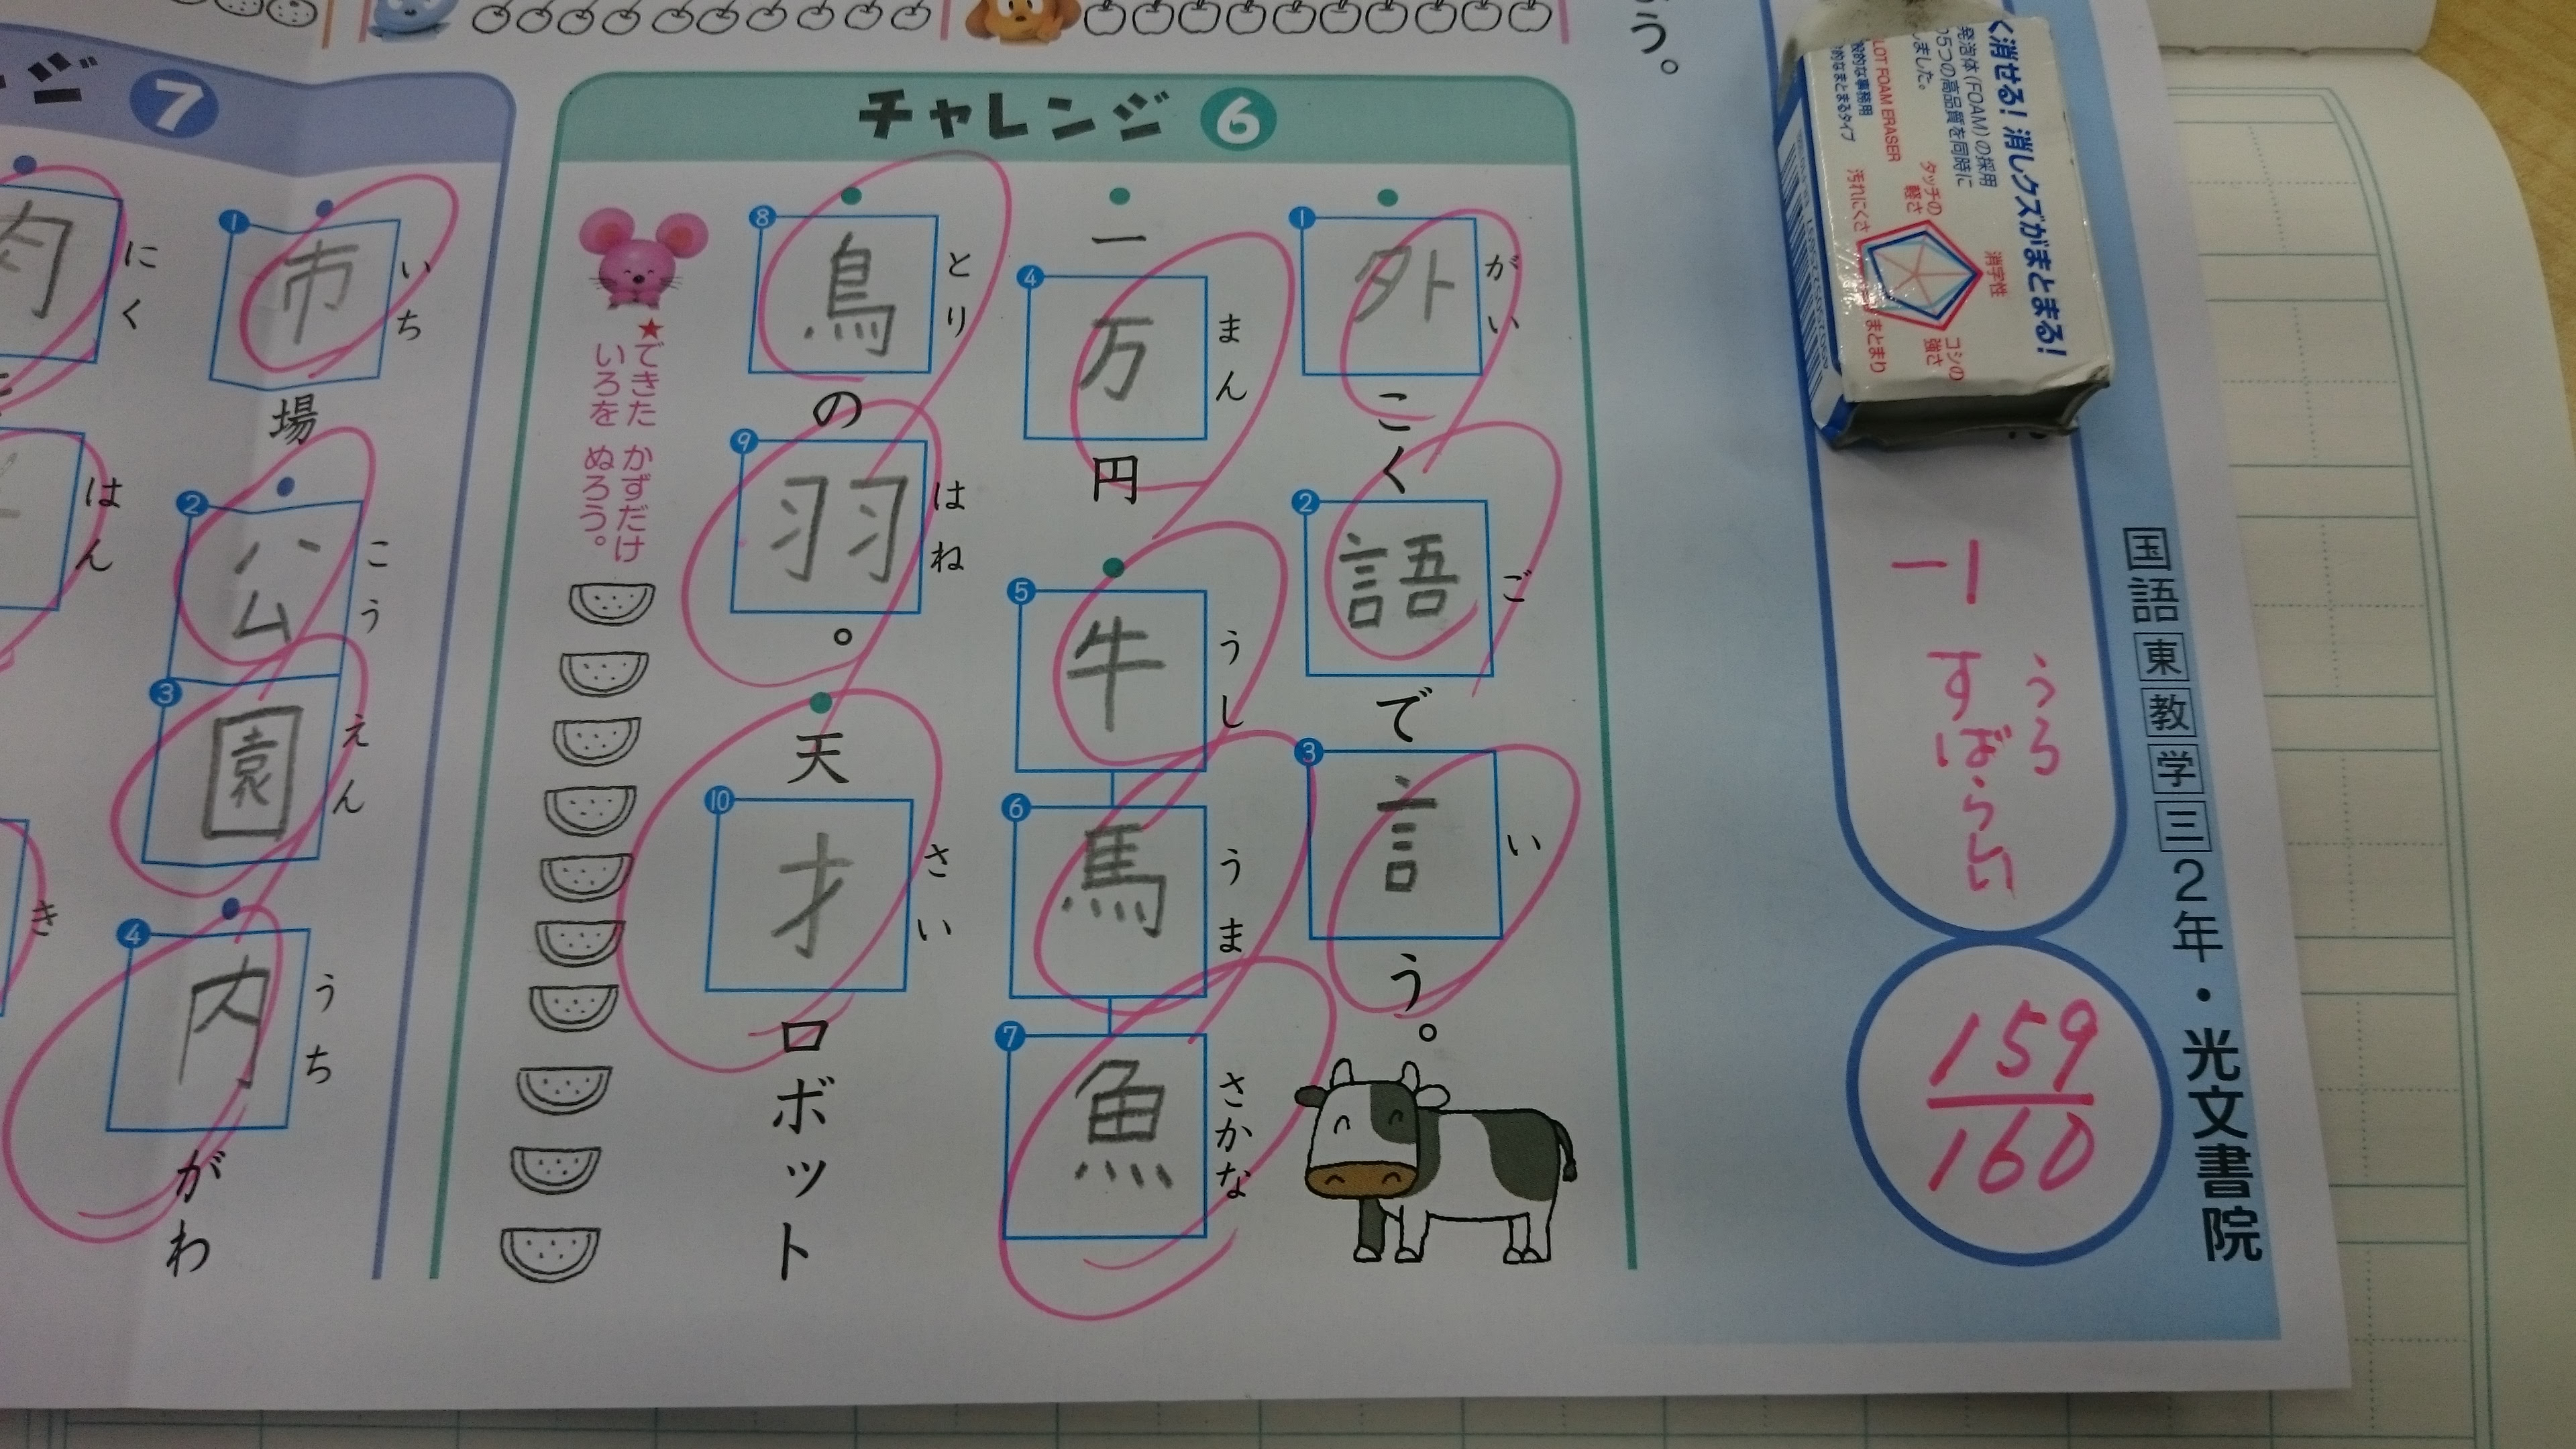 チャレンジ 6
1 外 がい こく 2 語 ご で 3 言 い う。
一 4 万 まん 円 5 牛 うし 6 馬 うま 7 魚 さかな
8 鳥 とり の 9 羽 はね 。 天 10 才 さい ロボット
★できた かずだけ
いろを ぬろう。
ンジ 7
1 市 いち 場 2 公 こう 3 園 えん 4 内 うち がわ
肉 にく
はん
き
う。
く消せる!消しクズがまとまる!
発泡体(FOAM)の採用
5つの高品質を同時に
しました。
LOT FOAM ERASER
的なまとまるタイプ
消字性
タッチの軽さ
汚れにくさ
コシの強さ
まとまり
-1
うろ
すばらしい
159
160
国語 東 教 学 三 2年・光文書院